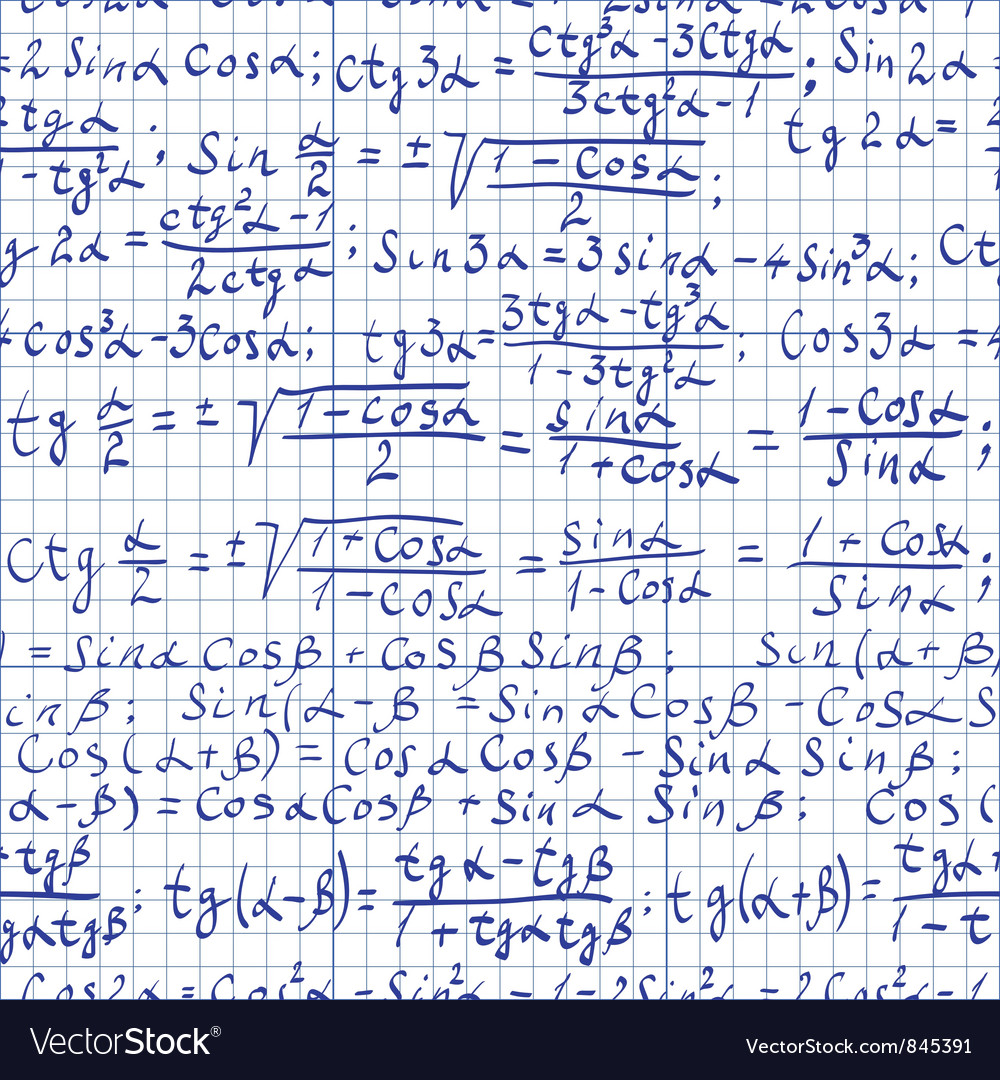 = 2 Sinα Cosα; ctg3α = (ctg³α - 3Ctgα)/(3ctg²α - 1); Sin2α =
tgα / - tg²α; Sin α/2 = ± √((1 - Cosα)/2); tg2α =
g 2α = (ctg²α - 1)/(2ctgα); Sin3α = 3sinα - 4Sin³α; Ct
4cos³α - 3Cosα; tg3α = (3tgα - tg³α)/(1 - 3tg²α); Cos3α = 4
tg α/2 = ± √((1 - cosα)/2) = sinα/(1 + cosα) = (1 - Cosα)/Sinα;
Ctg α/2 = ± √((1 + Cosα)/(1 - Cosα)) = Sinα/(1 - Cosα) = (1 + Cosα)/Sinα;
) = Sinα Cosβ + Cosβ Sinβ; Sin(α + β
inβ; Sin(α - β = Sinα Cosβ - Cosα S
Cos(α + β) = Cosα Cosβ - Sinα Sinβ;
α - β) = Cosα Cosβ + Sinα Sinβ; Cos(
tgβ / gαtgβ; tg(α - β) = (tgα - tgβ)/(1 + tgαtgβ); tg(α + β) = tgα / 1 - t
Cos2α = Cos²α - Sin²α = 1 - 2Sin²α = 2Cos²α - 1
VectorStock®
VectorStock.com/845391